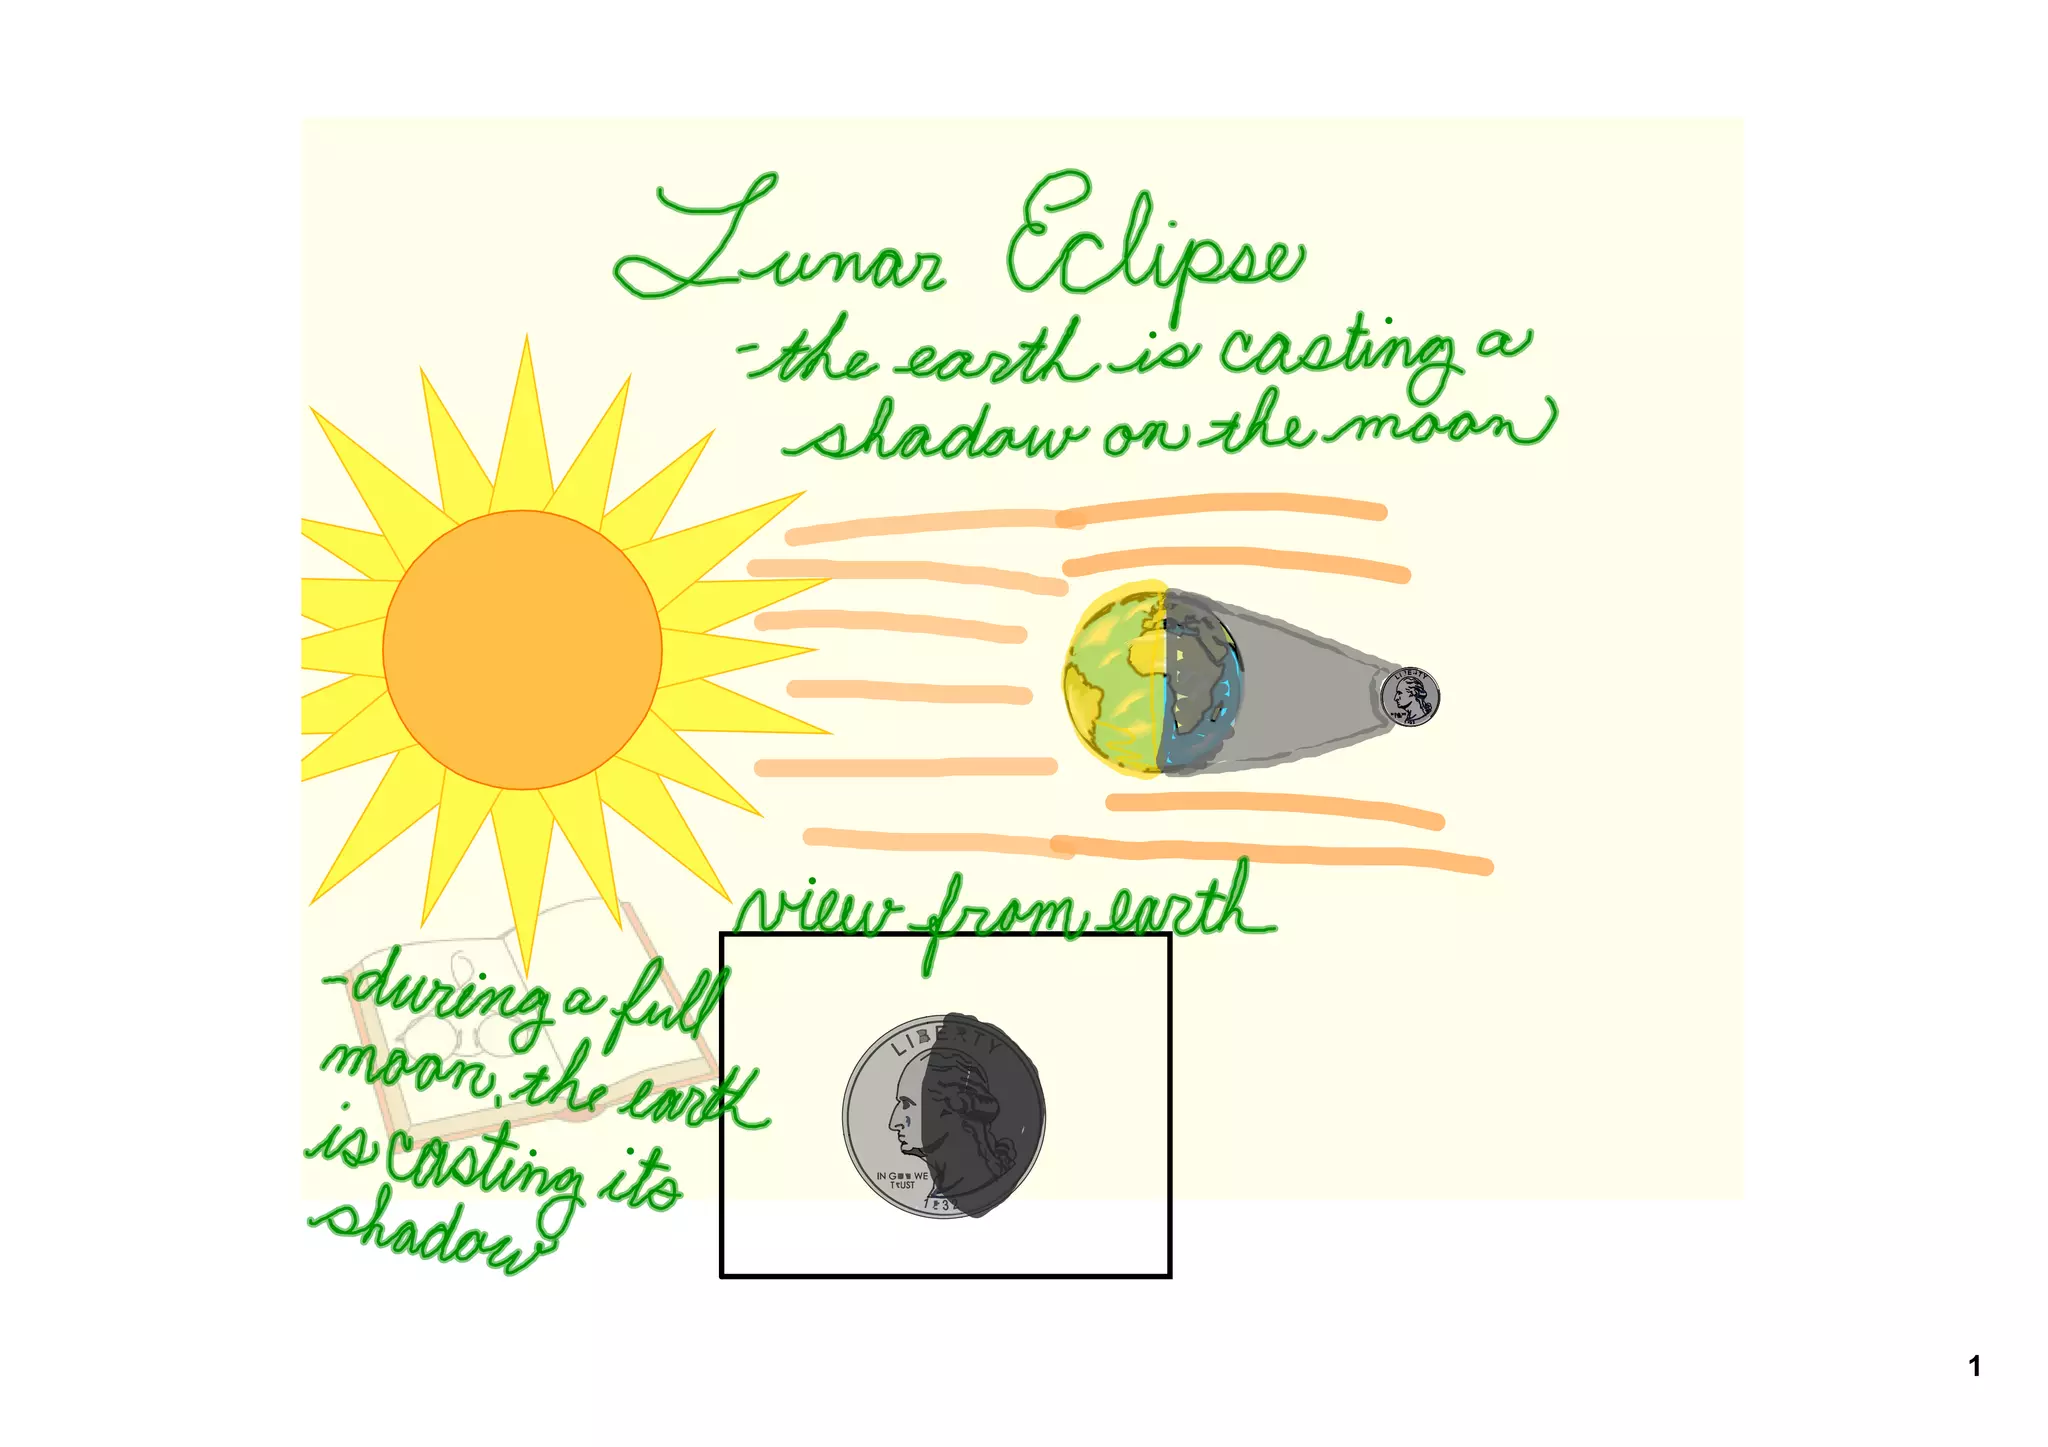 Lunar Eclipse
-the earth is casting a
shadow on the moon
LIBERTY
view from earth
-during a full
moon, the earth
is casting its
shadow
LIBERTY
IN G WE
TRUST
1